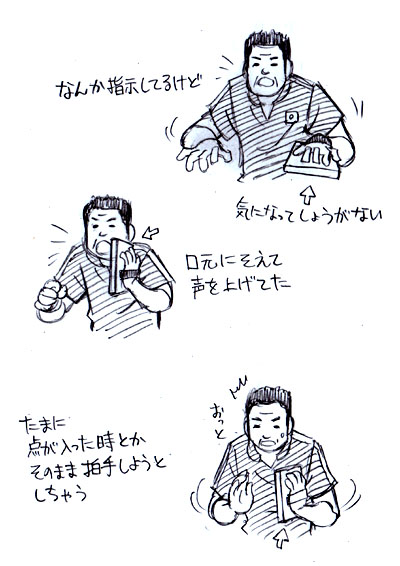 なんか指示してるけど
気になってしょうがない
口元にそえて
声を上げてた
おっと
たまに
点が入った時とか
そのまま拍手しようと
しちゃう